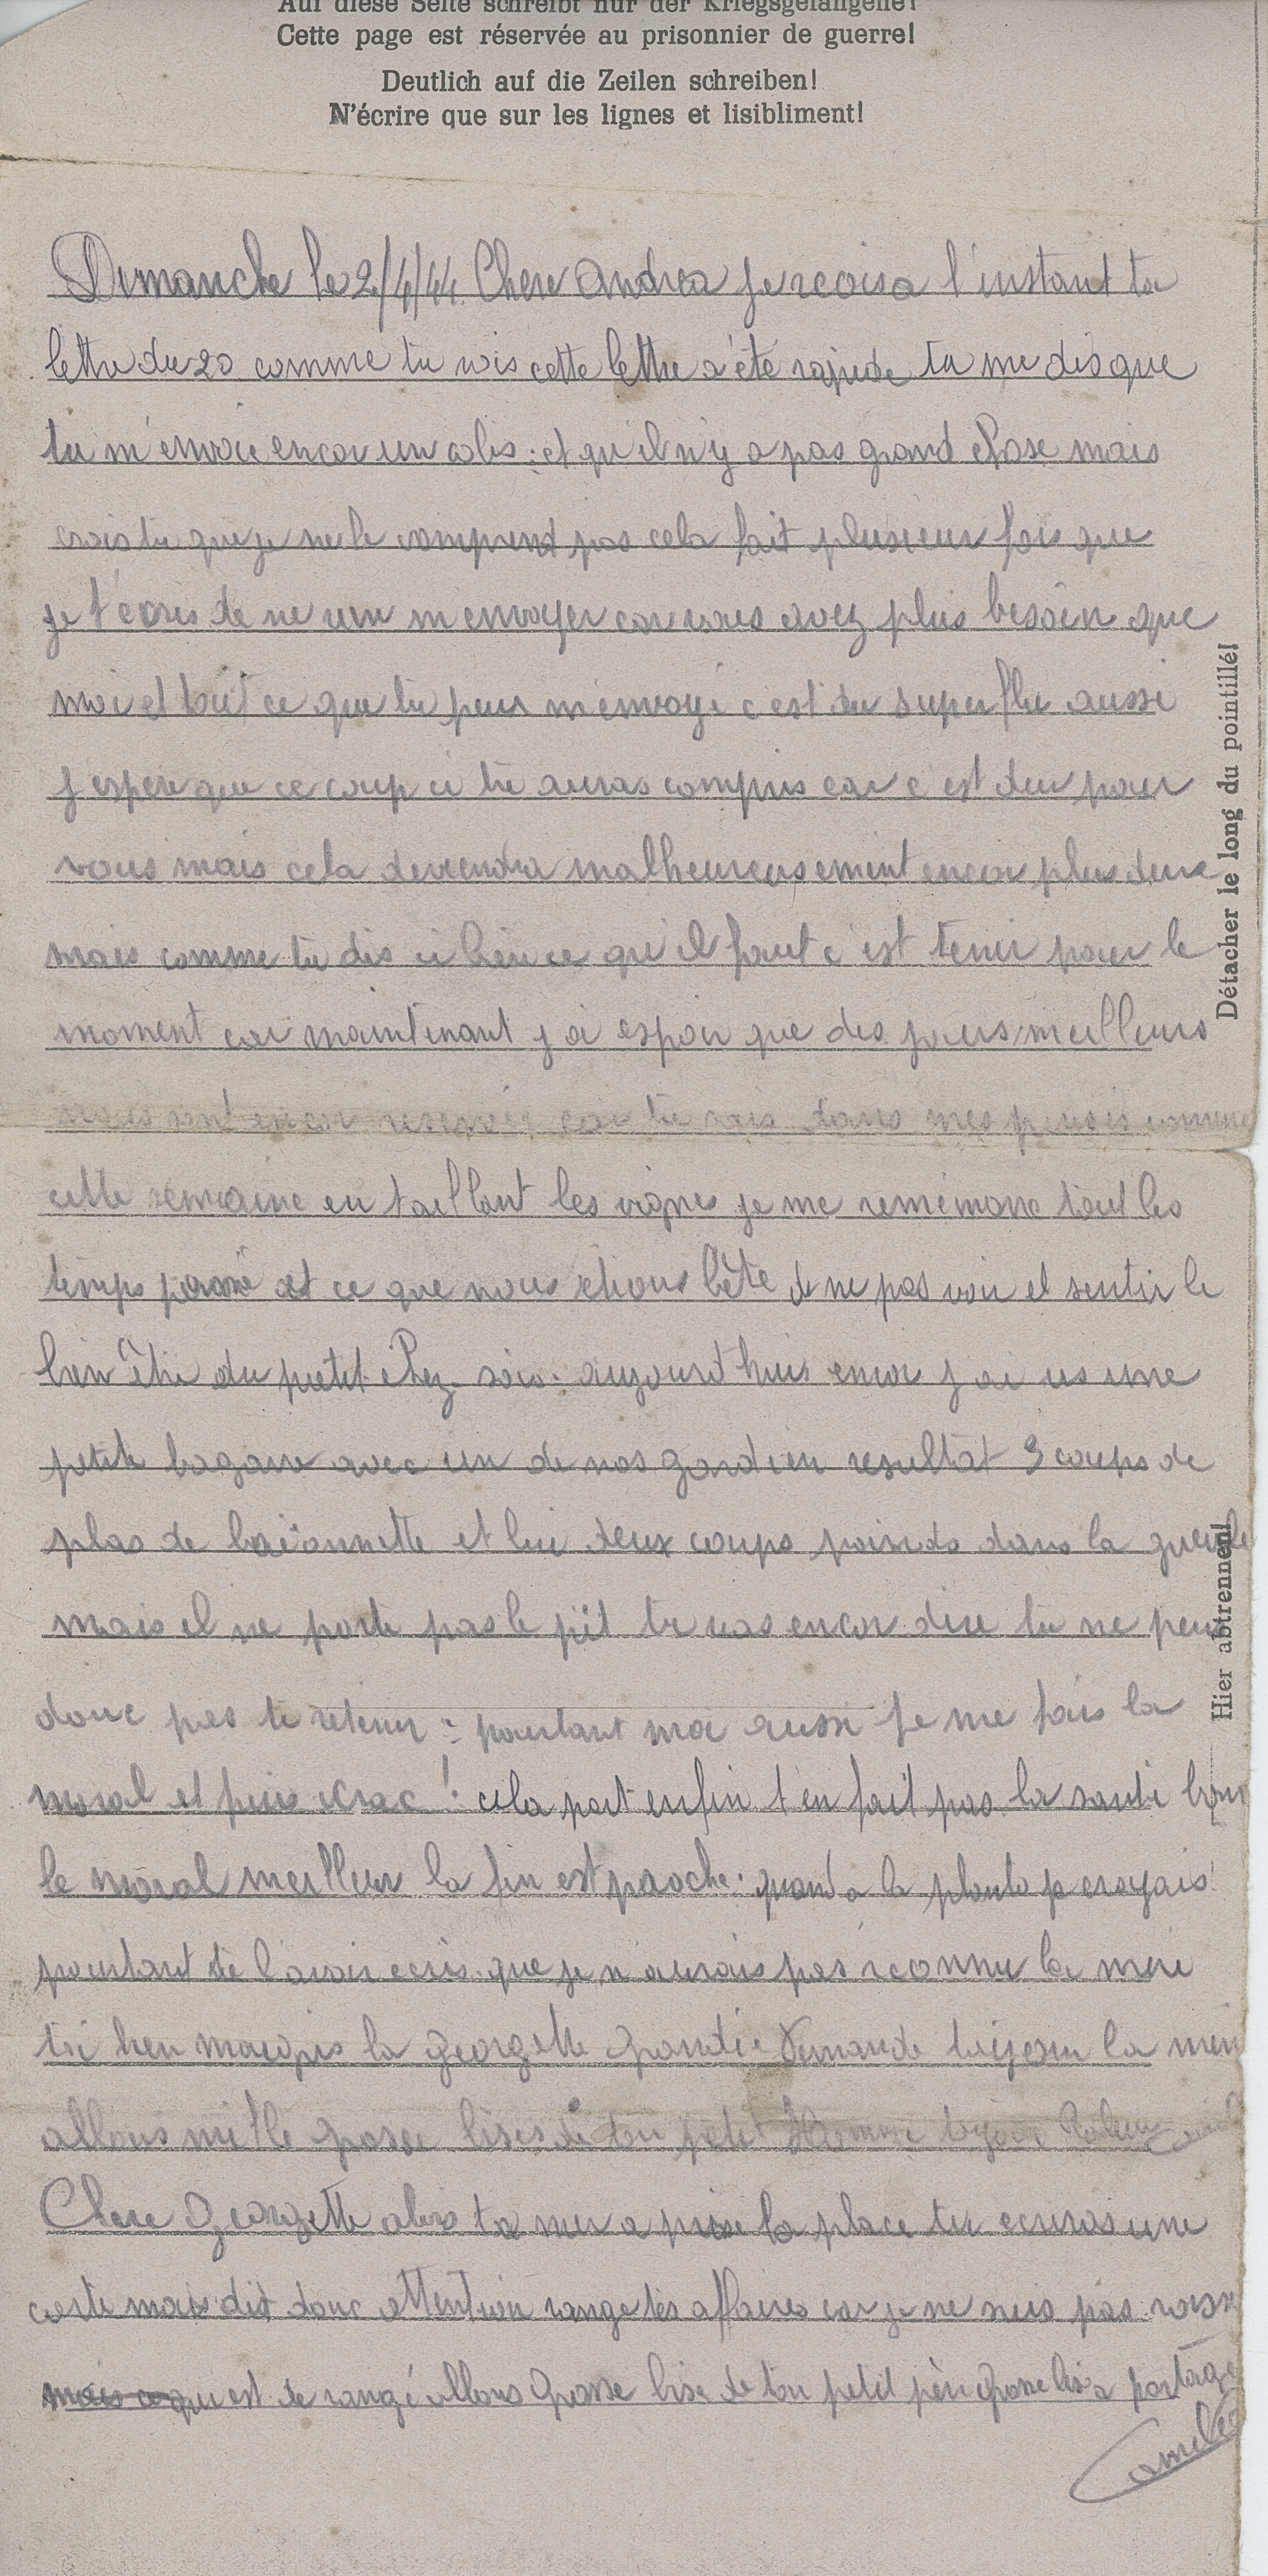 Auf diese Seite schreibt nur der Kriegsgefangene!
Cette page est réservée au prisonnier de guerre!
Deutlich auf die Zeilen schreiben!
N'écrire que sur les lignes et lisibliment!
Dimanche le 2/4/44 Chere Andrea je recois a l'instant ta
lettre du 20 comme tu vois cette lettre a été rapide tu me dis que
tu m'envoie encor un colis et qu'il n'y a pas grand chose mais
crois tu que je ne le comprend pas cela fait plusieur fois que
je t'écris de ne rien m'envoyer car vous avez plus besoin que
moi et tout ce que tu peux m'envoyé c'est du superflu aussi
j'espere que ce coup ci tu auras compris car c'est dur pour
vous mais cela deviendra malheureusement encor plus dure
mais comme tu dis si bien ce qu'il faut c'est tenir pour le
moment car maintenant j'ai espoir que des jours meilleurs
nous sont encor reservés car tu sais dans mes pensés comme
cette semaine en taillant les vignes je me remémore tout les
temps passé et ce que nous étions bête de ne pas voir et sentir le
bien être du petit chez-soi. aujourd'hui encor j'ai us une
petite bagare avec un de nos gardien resultat 3 coups de
plas de baïonnette et lui deux coups poinds dans la gueule
mais il ne porte pas le pèt tu vas encor dire tu ne peux
donc pas te retenir: pourtant moi aussi je me fais la
moral et puis crac! cela part enfin t'en fait pas la santé bonne
le moral meilleur la fin est proche. quand a la photo je croyais
pourtant te l'avoir ecris que je n'aurais pas reconnu la mere
tu bien maigris la Georgette grandie
allons mille grosse bises de ton petit Homme
Chere Georgette alors ta mere a prise la place tu ecriras une
carte mais dit donc attention range tes affaires car je ne suis pas
mais ce qui est de rangé allons Grosse bise de ton petit père Grosse bise a partagé
Camille
Détacher le long du pointillé!
Hier abtrennen!